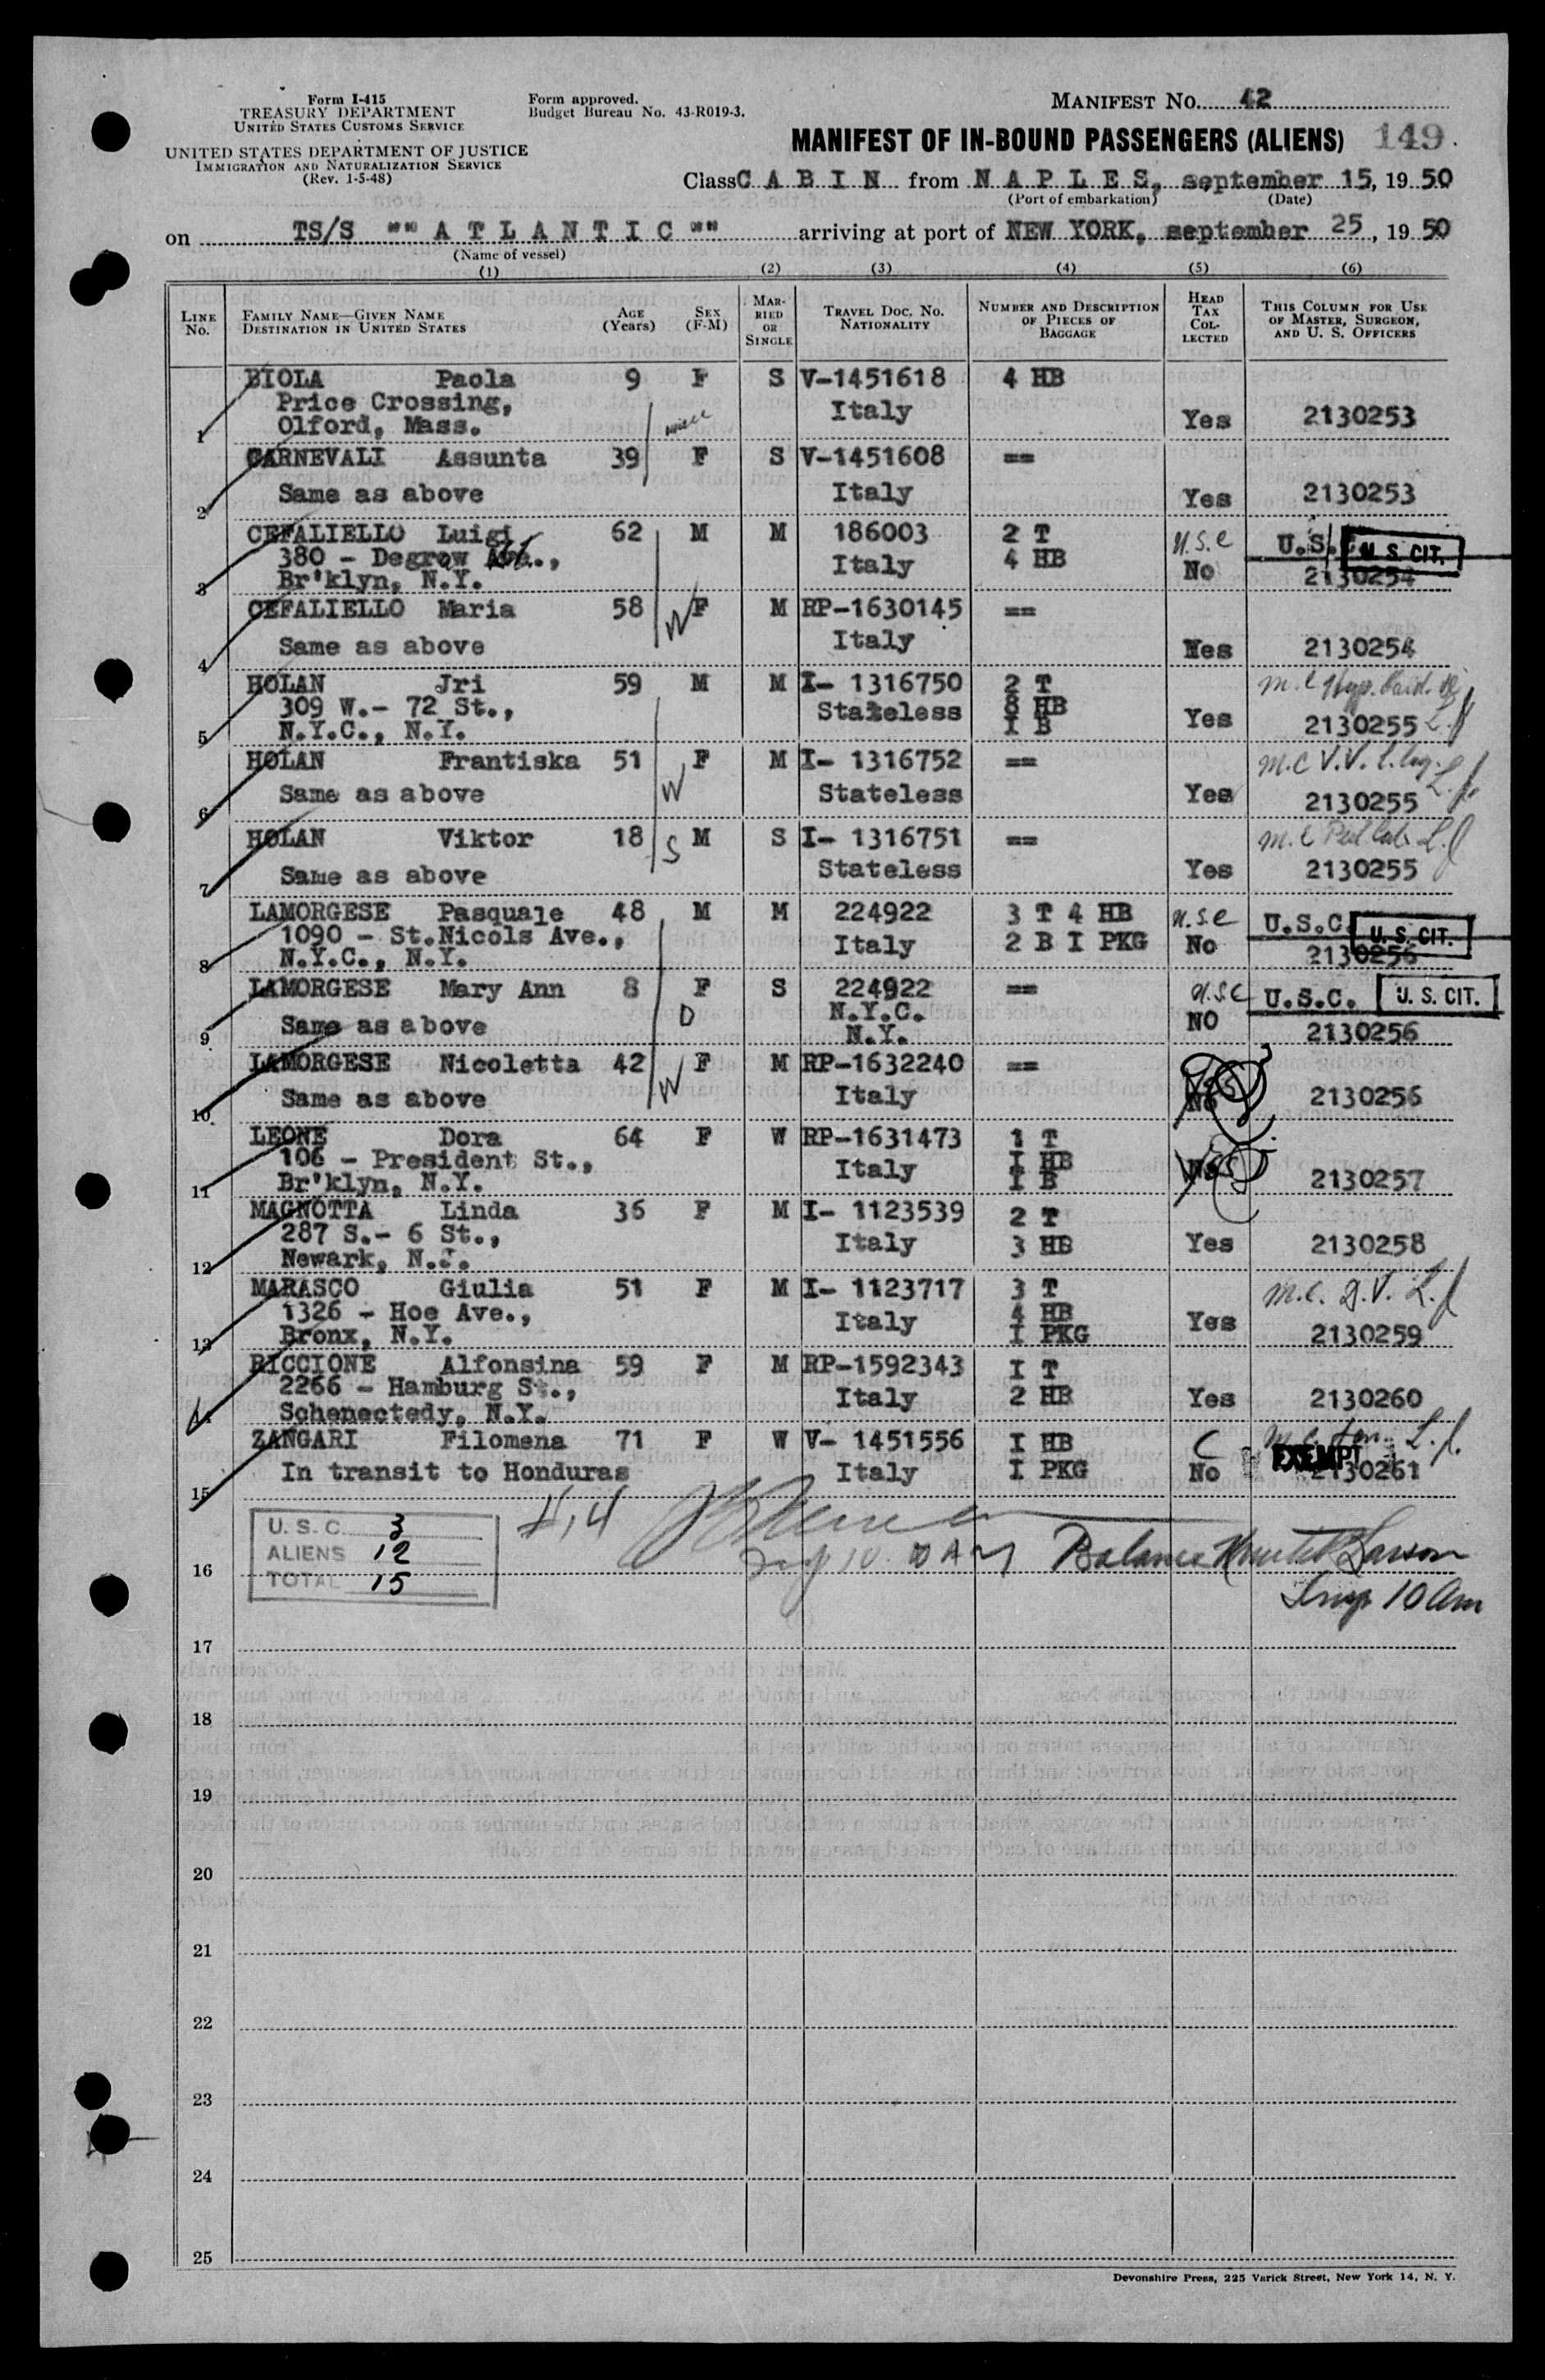 Form I-415
TREASURY DEPARTMENT
UNITED STATES CUSTOMS SERVICE
UNITED STATES DEPARTMENT OF JUSTICE
IMMIGRATION AND NATURALIZATION SERVICE
(Rev. 1-5-48)
Form approved.
Budget Bureau No. 43-R019-3.
MANIFEST NO. 42
MANIFEST OF IN-BOUND PASSENGERS (ALIENS) 149.
Class C A B I N from N A P L E S, september 15, 19 50
(Port of embarkation) (Date)
on TS/S "" A T L A N T I C "" arriving at port of NEW YORK, september 25, 19 50
(Name of vessel)
(1) (2) (3) (4) (5) (6)
LINE NO. FAMILY NAME—GIVEN NAME DESTINATION IN UNITED STATES AGE (Years) SEX (F-M) MARRIED OR SINGLE TRAVEL DOC. NO. NATIONALITY NUMBER AND DESCRIPTION OF PIECES OF BAGGAGE HEAD TAX COLLECTED THIS COLUMN FOR USE OF MASTER, SURGEON, AND U. S. OFFICERS
BIOLA Paola 9 F S V-1451618 4 HB
Price Crossing, Italy
1 Olford, Mass. Yes 2130253
niece
CARNEVALI Assunta 39 F S V-1451608 ==
2 Same as above Italy Yes 2130253
CEFALIELLO Luigi 62 M M 186003 2 T U.S.C U.S. U. S. CIT.
380 - Degrow St., Italy 4 HB
3 Br'klyn, N.Y. No 2130254
CEFALIELLO Maria 58 W F M RP-1630145 ==
4 Same as above Italy Yes 2130254
HOLAN Jri 59 M M I- 1316750 2 T
309 W.- 72 St., Stateless 8 HB
5 N.Y.C., N.Y. I B Yes 2130255 L.J
HOLAN Frantiska 51 F M I- 1316752 == m.c V.V.
6 Same as above W Stateless Yes 2130255 L.J.
HOLAN Viktor 18 S M S I- 1316751 == m.c L.J
7 Same as above Stateless Yes 2130255
LAMORGESE Pasquale 48 M M 224922 3 T 4 HB U.S.C U.S.C. U. S. CIT.
1090 - St.Nicols Ave., Italy 2 B I PKG No
8 N.Y.C., N.Y. 2130256
LAMORGESE Mary Ann 8 F S 224922 == U.S.C U.S.C. U. S. CIT.
9 Same as above D N.Y.C. NO
N.Y. 2130256
LAMORGESE Nicoletta 42 W F M RP-1632240 ==
10 Same as above Italy No 2130256
LEONE Dora 64 F W RP-1631473 1 T
106 - President St., Italy I HB
11 Br'klyn, N.Y. I B 2130257
MAGNOTTA Linda 36 F M I- 1123539 2 T
287 S.- 6 St., Italy 3 HB Yes 2130258
12 Newark, N.J.
MARASCO Giulia 51 F M I- 1123717 3 T m.c. L.J
1326 - Hoe Ave., Italy 4 HB Yes
13 Bronx, N.Y. I PKG 2130259
RICCIONE Alfonsina 59 F M RP-1592343 I T
2266 - Hamburg St., Italy 2 HB Yes 2130260
14 Schenectedy, N.Y.
ZANGARI Filomena 71 F W V- 1451556 I HB C m.c. L.J.
In transit to Honduras Italy I PKG No EXEMPT 2130261
15
U. S. C. 3
ALIENS 12
TOTAL 15
10 AM
Balance Larson
Insp 10 am
16
17
18
19
20
21
22
23
24
25
Devonshire Press, 225 Varick Street, New York 14, N. Y.